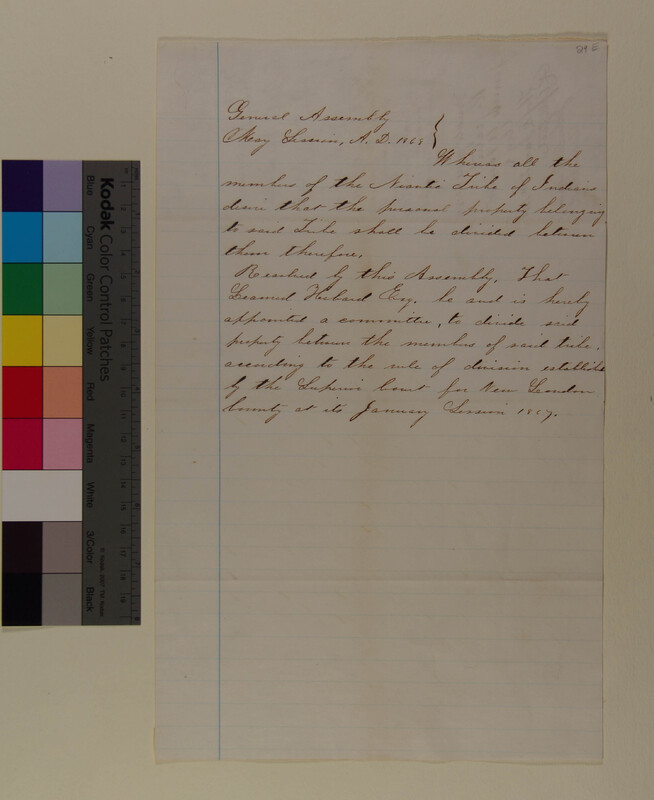 89 E
General Assembly
May Session, A. D. 1868 }
Whereas all the
members of the Niantic Tribe of Indians
desire that the personal property belonging
to said Tribe shall be divided between
them therefore,
Resolved by this Assembly, That
Learned Hebard Esq. be and is hereby
appointed a committee, to divide said
property between the members of said tribe.
according to the rule of division establish
by the Superior Court for New London
County at its January Session 1867.
Kodak Color Control Patches
Blue Cyan Green Yellow Red Magenta White 3/Color Black